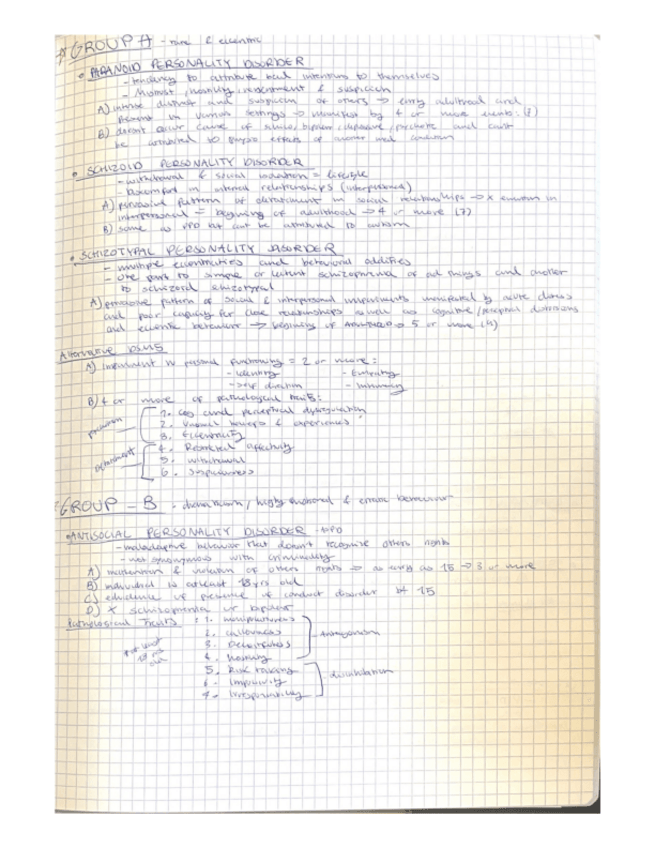 GROUP A - rare & eccentric
• PARANOID PERSONALITY DISORDER
- tendency to attribute bad intentions to themselves
- Mistrust, hostility, resentment & suspicion
A) intense distrust and suspicion of others → early adulthood and
present in various settings → manifest by 4 or more events: (7)
B) doesn't occur cause of schizo/bipolar/depressive/psychotic and can't
be attributed to physio effects of another med condition
• SCHIZOID PERSONALITY DISORDER
- withdrawal & social isolation = lifestyle
- Discomfort in interpersonal relationships (interpersonal)
A) pervasive pattern of detachment in social relationships → x emotion in
interpersonal = beginning of adulthood → 4 or more (7)
B) same as PPD but can't be attributed to autism
• SCHIZOTYPAL PERSONALITY DISORDER
- multiple eccentricities and behavioral oddities
- one part to simple or latent schizophrenia of and another
to schizoid schizotypal
A) pervasive pattern of social & interpersonal impairments manifested by acute
and poor capacity for close relationships as well as cognitive/perceptual distortions
and eccentric behaviour → beginning of 5 or more (9)
Alternative DSM5
A) impairment in personal functioning = 2 or more:
- Identity - Empathy
- Self direction - Intimacy
B) 4 or more of pathological traits:
1. Cog and perceptual dysregulation
2. Unusual beliefs & experiences
3. Eccentricity
4. Restricted affectivity
Detachment
5. Withdrawal
6. Suspiciousness
GROUP - B - dramatism/highly emotional & erratic behaviour
• ANTISOCIAL PERSONALITY DISORDER
- maladaptive behavior that doesn't recognize others rights
- not synonymous with criminality
A) and violation of others rights → as early as 15 → 3 or more
B) individual is atleast 18 yrs old
C) evidence of presence of conduct disorder 15
D) x schizophrenia or bipolar
Pathological Traits: 1. manipulativeness
2. callousness
- Antagonism
3. Deceitfulness
at least 18 yrs old
4. Hostility
5. Risk taking
- disinhibition
6. Impulsivity
7. Irresponsibility